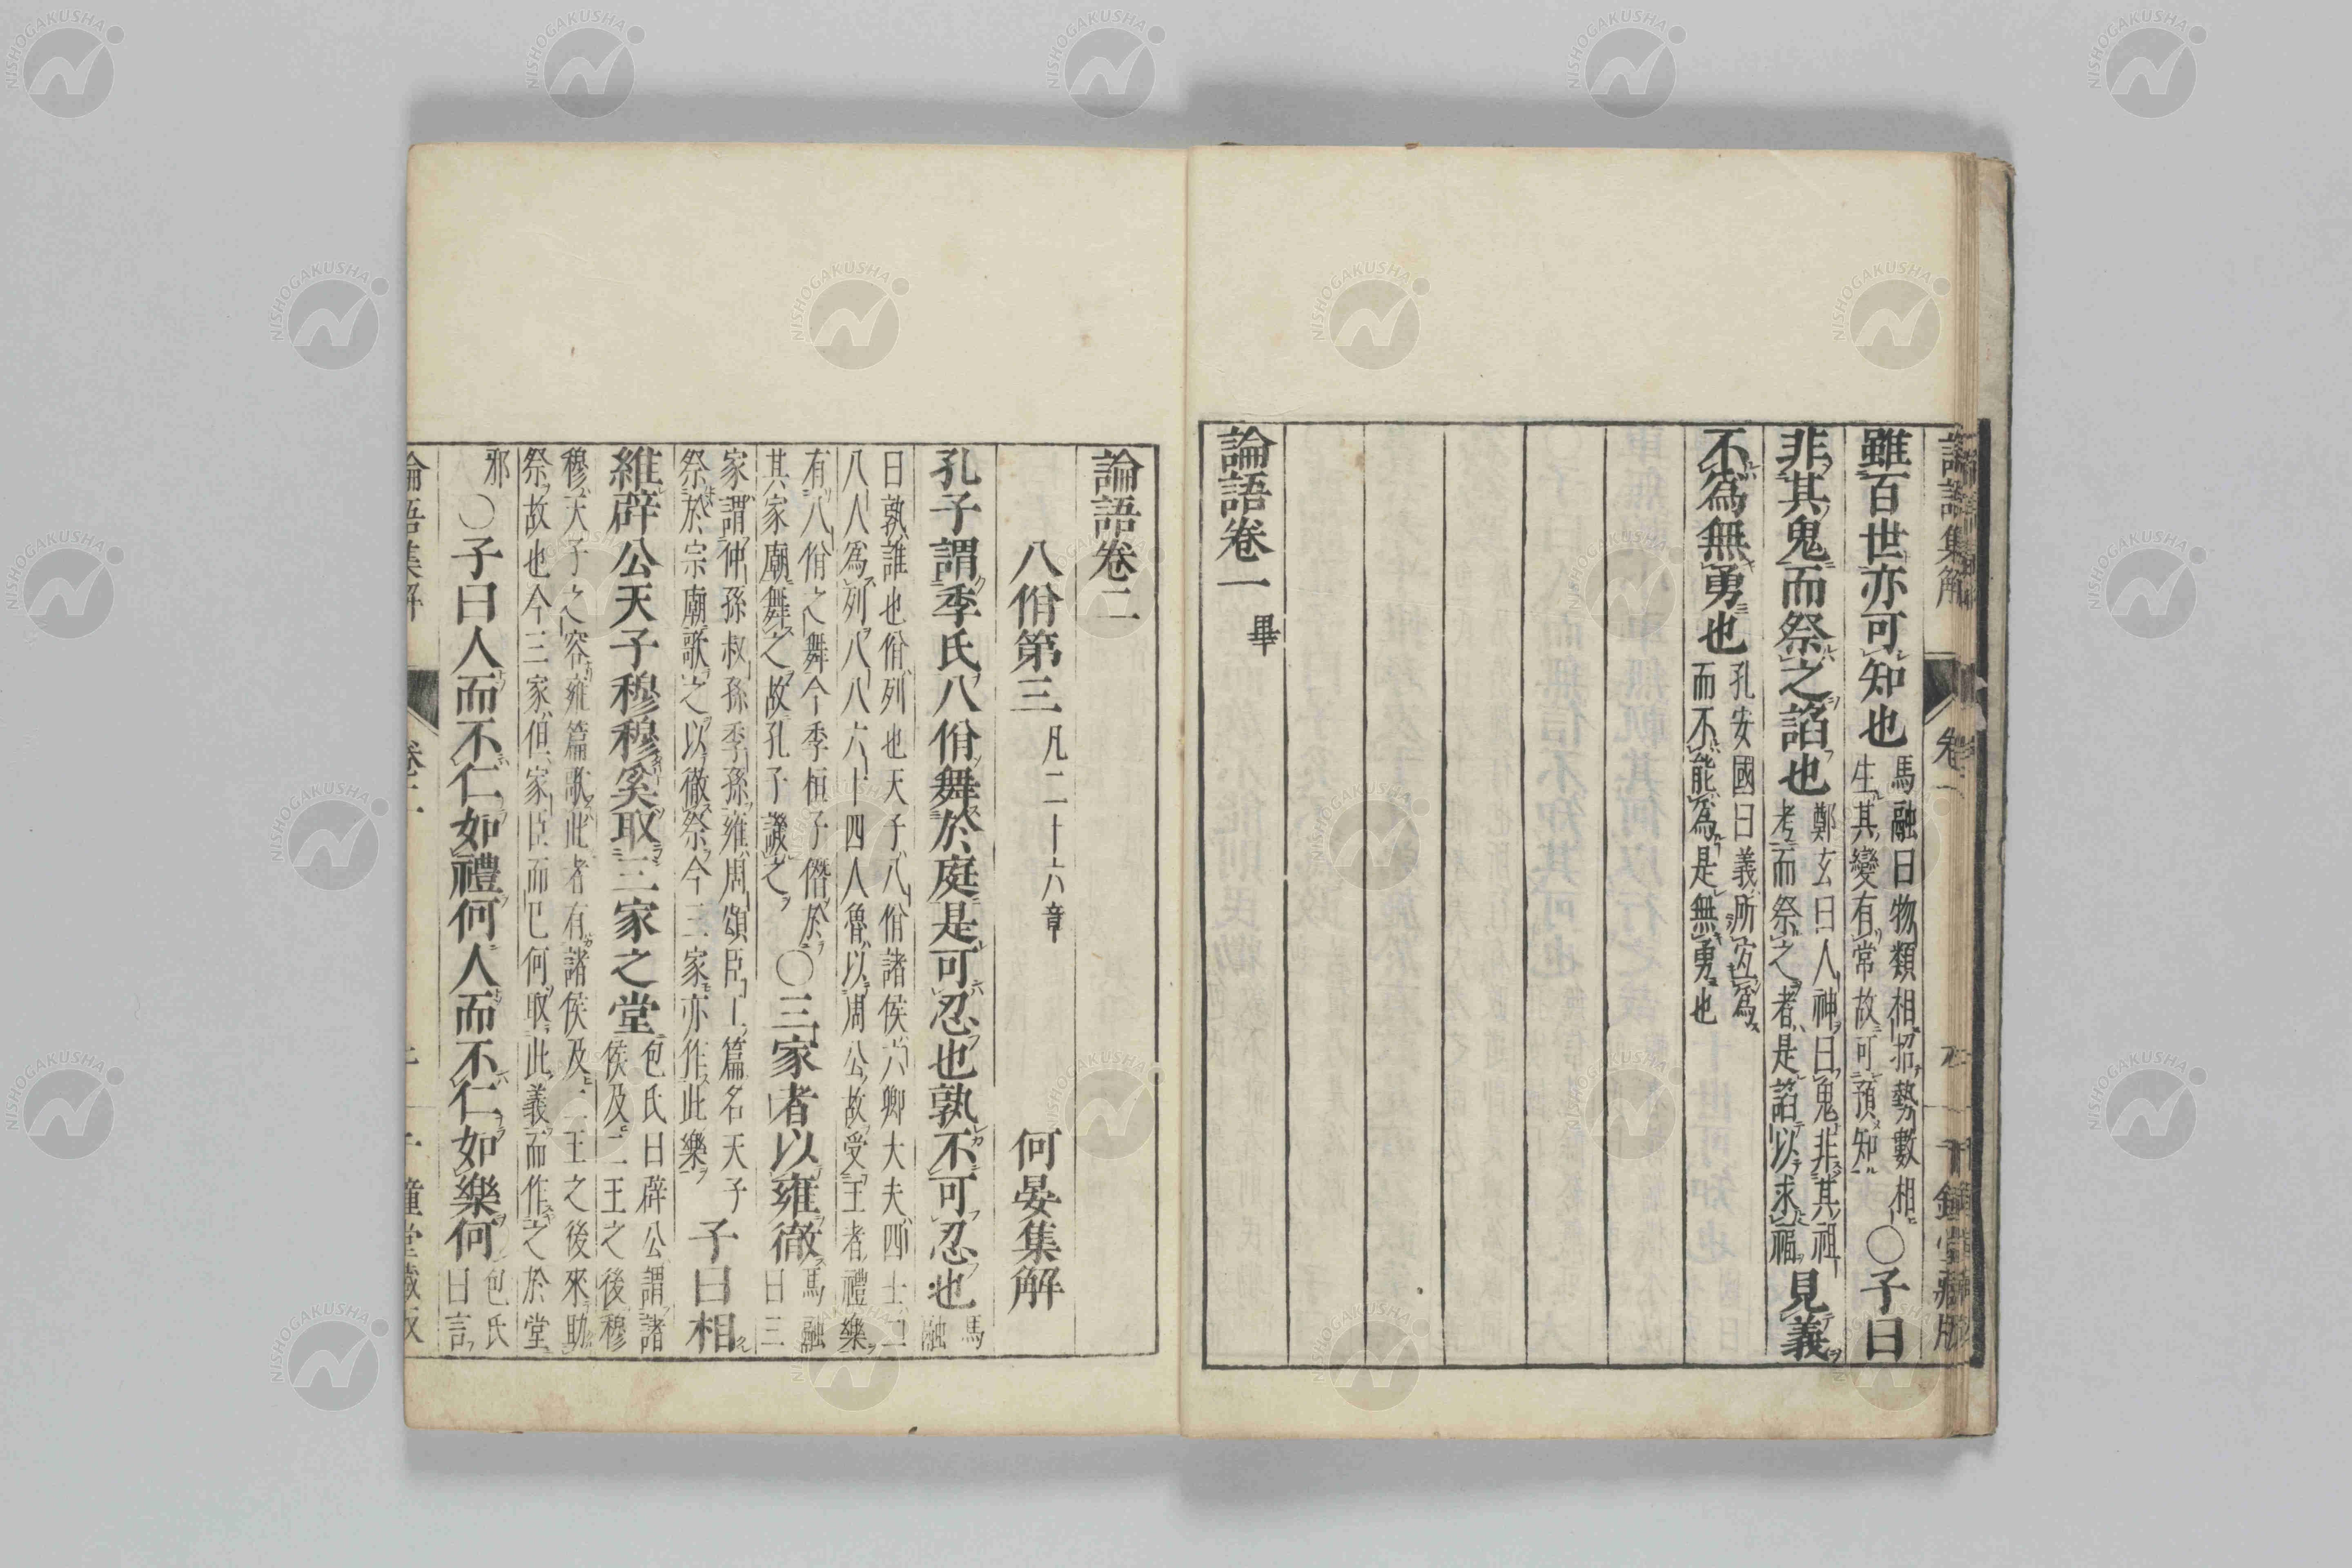 雖百世亦可知也 馬融曰物類相招勢數相 生其變有常故可預知 ○子曰
非其鬼而祭之諂也 鄭玄曰人神曰鬼非其祖 考而祭之者是諂以求福 見義
不為無勇也 孔安國曰義所宜為 而不能為是無勇也
論語卷一 畢
論語卷二
八佾第三 凡二十六章 何晏集解
孔子謂季氏八佾舞於庭是可忍也孰不可忍也 馬 融
曰孰誰也佾列也天子八佾諸侯六卿大夫四士二
八人為列八八六十四人魯以周公故受王者禮樂
有八佾之舞今季桓子僭於
其家廟舞之故孔子譏之 ○三家者以雍徹 馬融 曰三
家謂仲孫叔孫季孫雍周頌臣工篇名天子
祭於宗廟歌之以徹祭今三家亦作此樂 子曰相
維辟公天子穆穆奚取三家之堂 包氏曰辟公謂諸 侯及二王之後穆
穆天子之容雍篇歌此者有諸侯及二王之後來助
祭故也今三家但家臣而已何取此義而作之於堂
邪 ○子曰人而不仁如禮何人而不仁如樂何 包氏 曰言
NISHOGAKUSHA